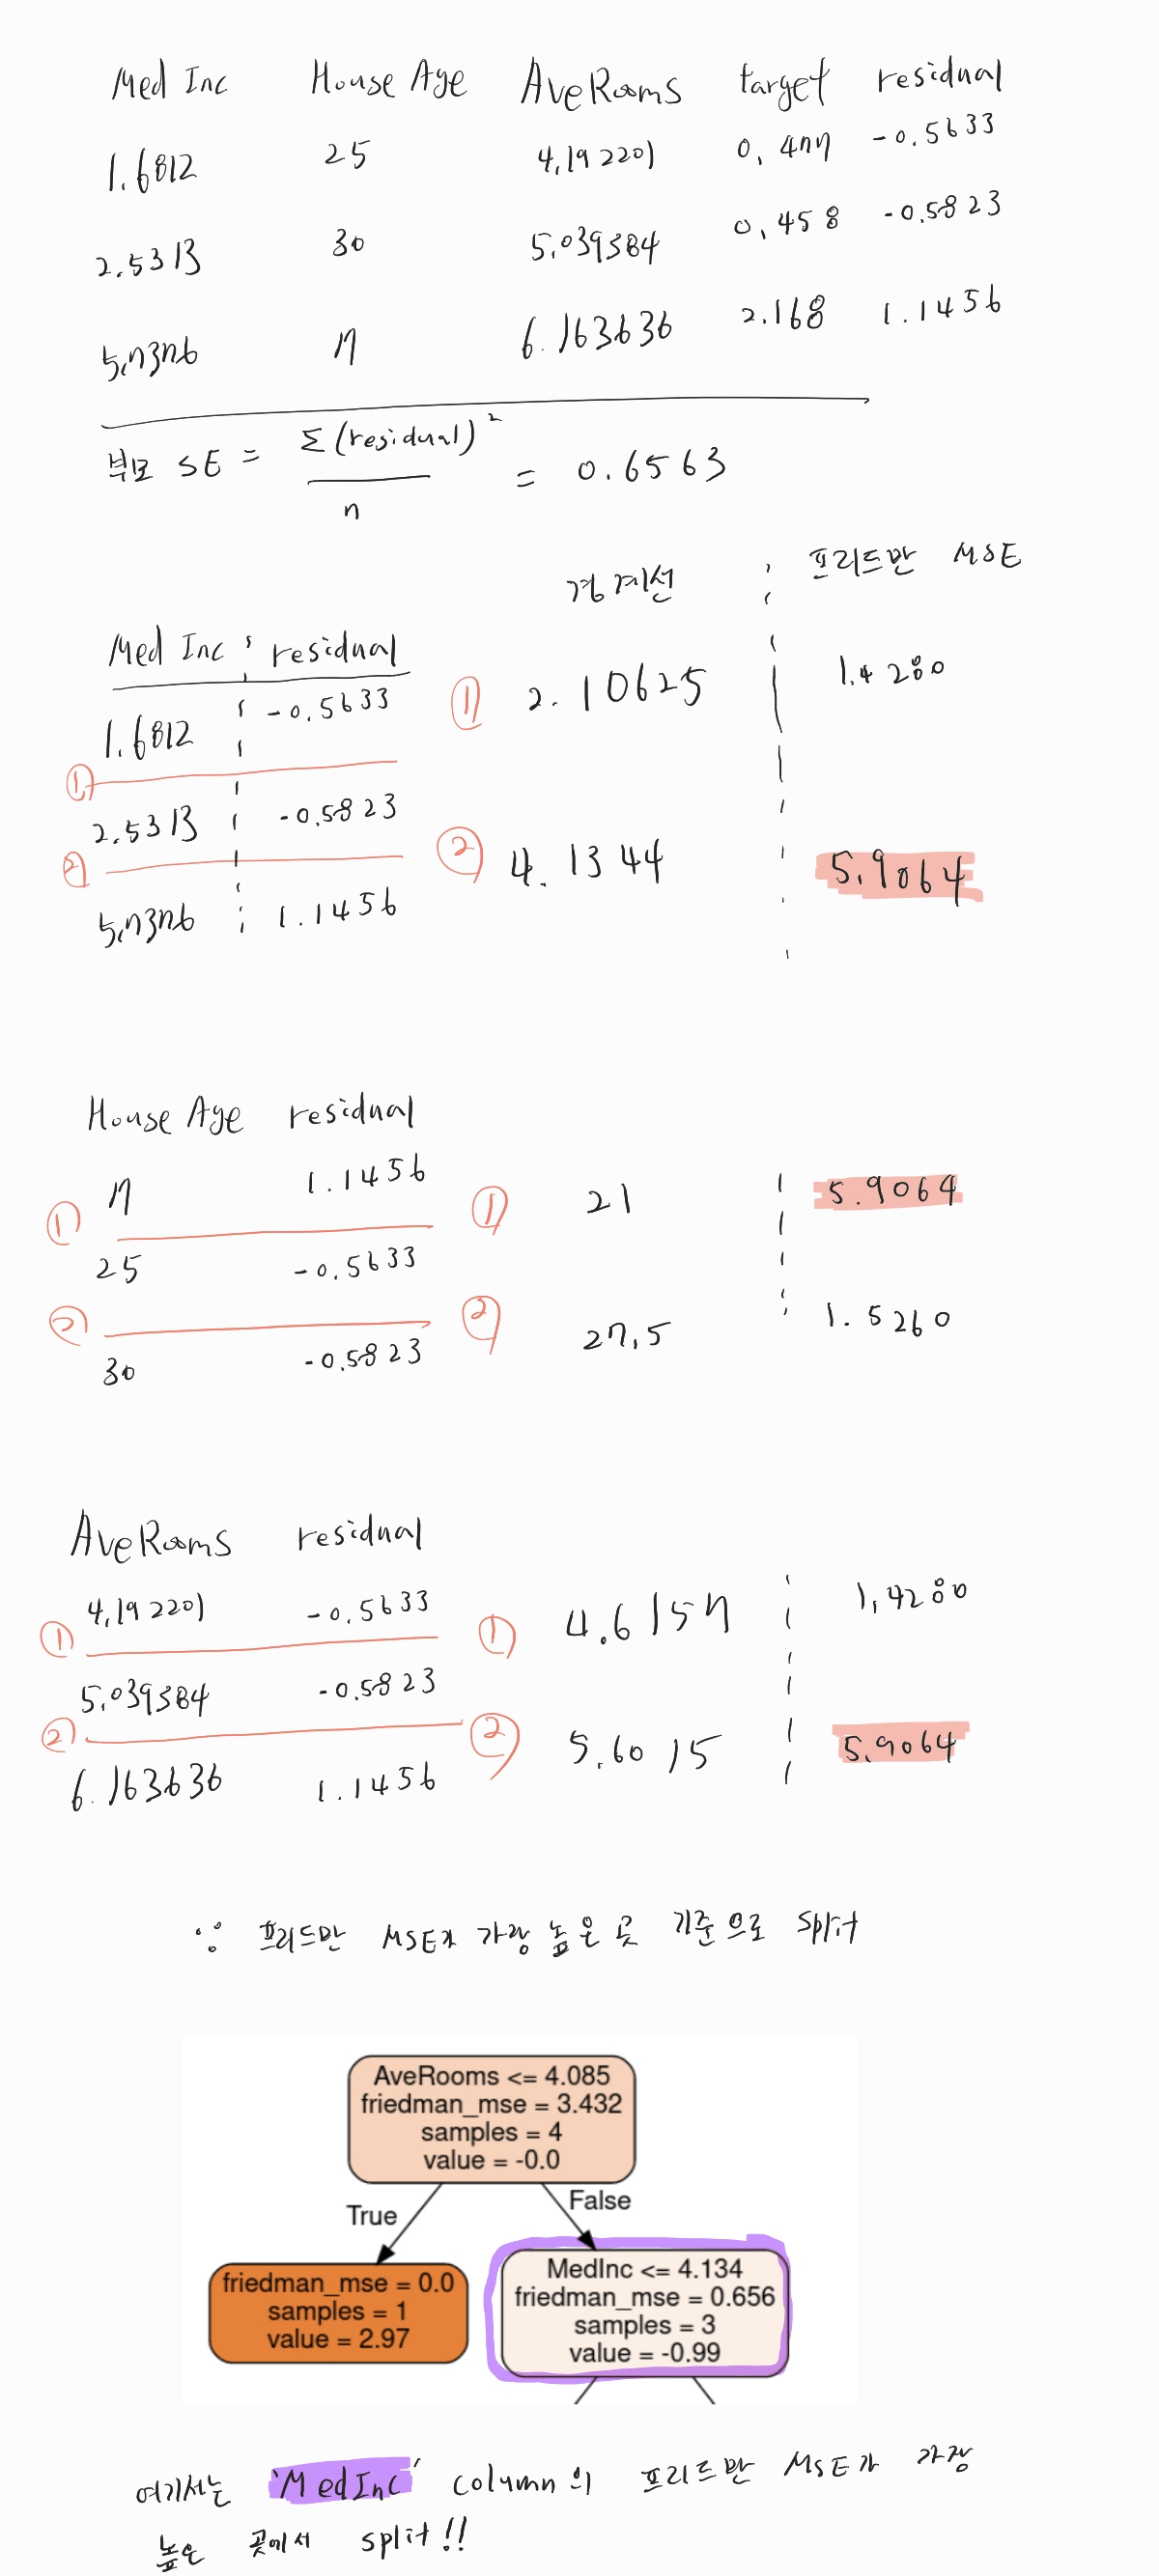 Med Inc House Age AveRooms target residual
1.6812 25 4.192201 0.477 -0.5633
2.5313 30 5.039384 0.458 -0.5823
5.7376 17 6.163636 2.168 1.1456
부모 SE = Σ(residual)² / n = 0.6563
경계선 프리드만 MSE
Med Inc residual
1.6812 -0.5633
① 2.10625 1.4280
①
2.5313 -0.5823
②
② 4.1344 5.9064
5.7376 1.1456
House Age residual
17 1.1456
① ① 21 5.9064
25 -0.5633
② ② 27.5 1.5260
30 -0.5823
AveRooms residual
4.192201 -0.5633
① ① 4.6157 1.4280
5.039384 -0.5823
② ② 5.6015 5.9064
6.163636 1.1456
∵ 프리드만 MSE가 가장 높은 곳 기준으로 split
AveRooms <= 4.085
friedman_mse = 3.432
samples = 4
value = -0.0
True
False
friedman_mse = 0.0
samples = 1
value = 2.97
MedInc <= 4.134
friedman_mse = 0.656
samples = 3
value = -0.99
여기서는 'MedInc' column의 프리드만 MSE가 가장
높은 곳에서 split!!